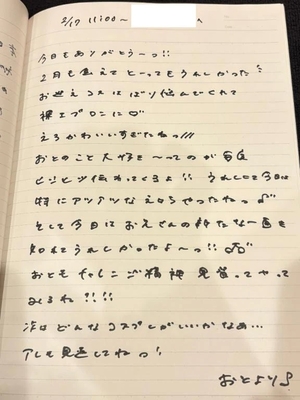 2/17 11:00～ へ
今日もありがとう～っ!!
2月も会えて とーってもうれしかった!
お迎えコスはばり悩んでくれて
裸エプロンに♡
えろかわいいすぎたねっ///
おとのこと大好き～ってのが毎度
ビシビシ伝わってくるよ!! うれしくて今日は
特にアツアツなえっちやったねっ
そして今日はおえさんの新たな一面を
知れてうれしかったよ～っ!!
おともチャレンジ精神 見習ってやって
みるね!!!!
次はどんなコスプレがいいかなぁ…
アレも見返してねっ!
おとより